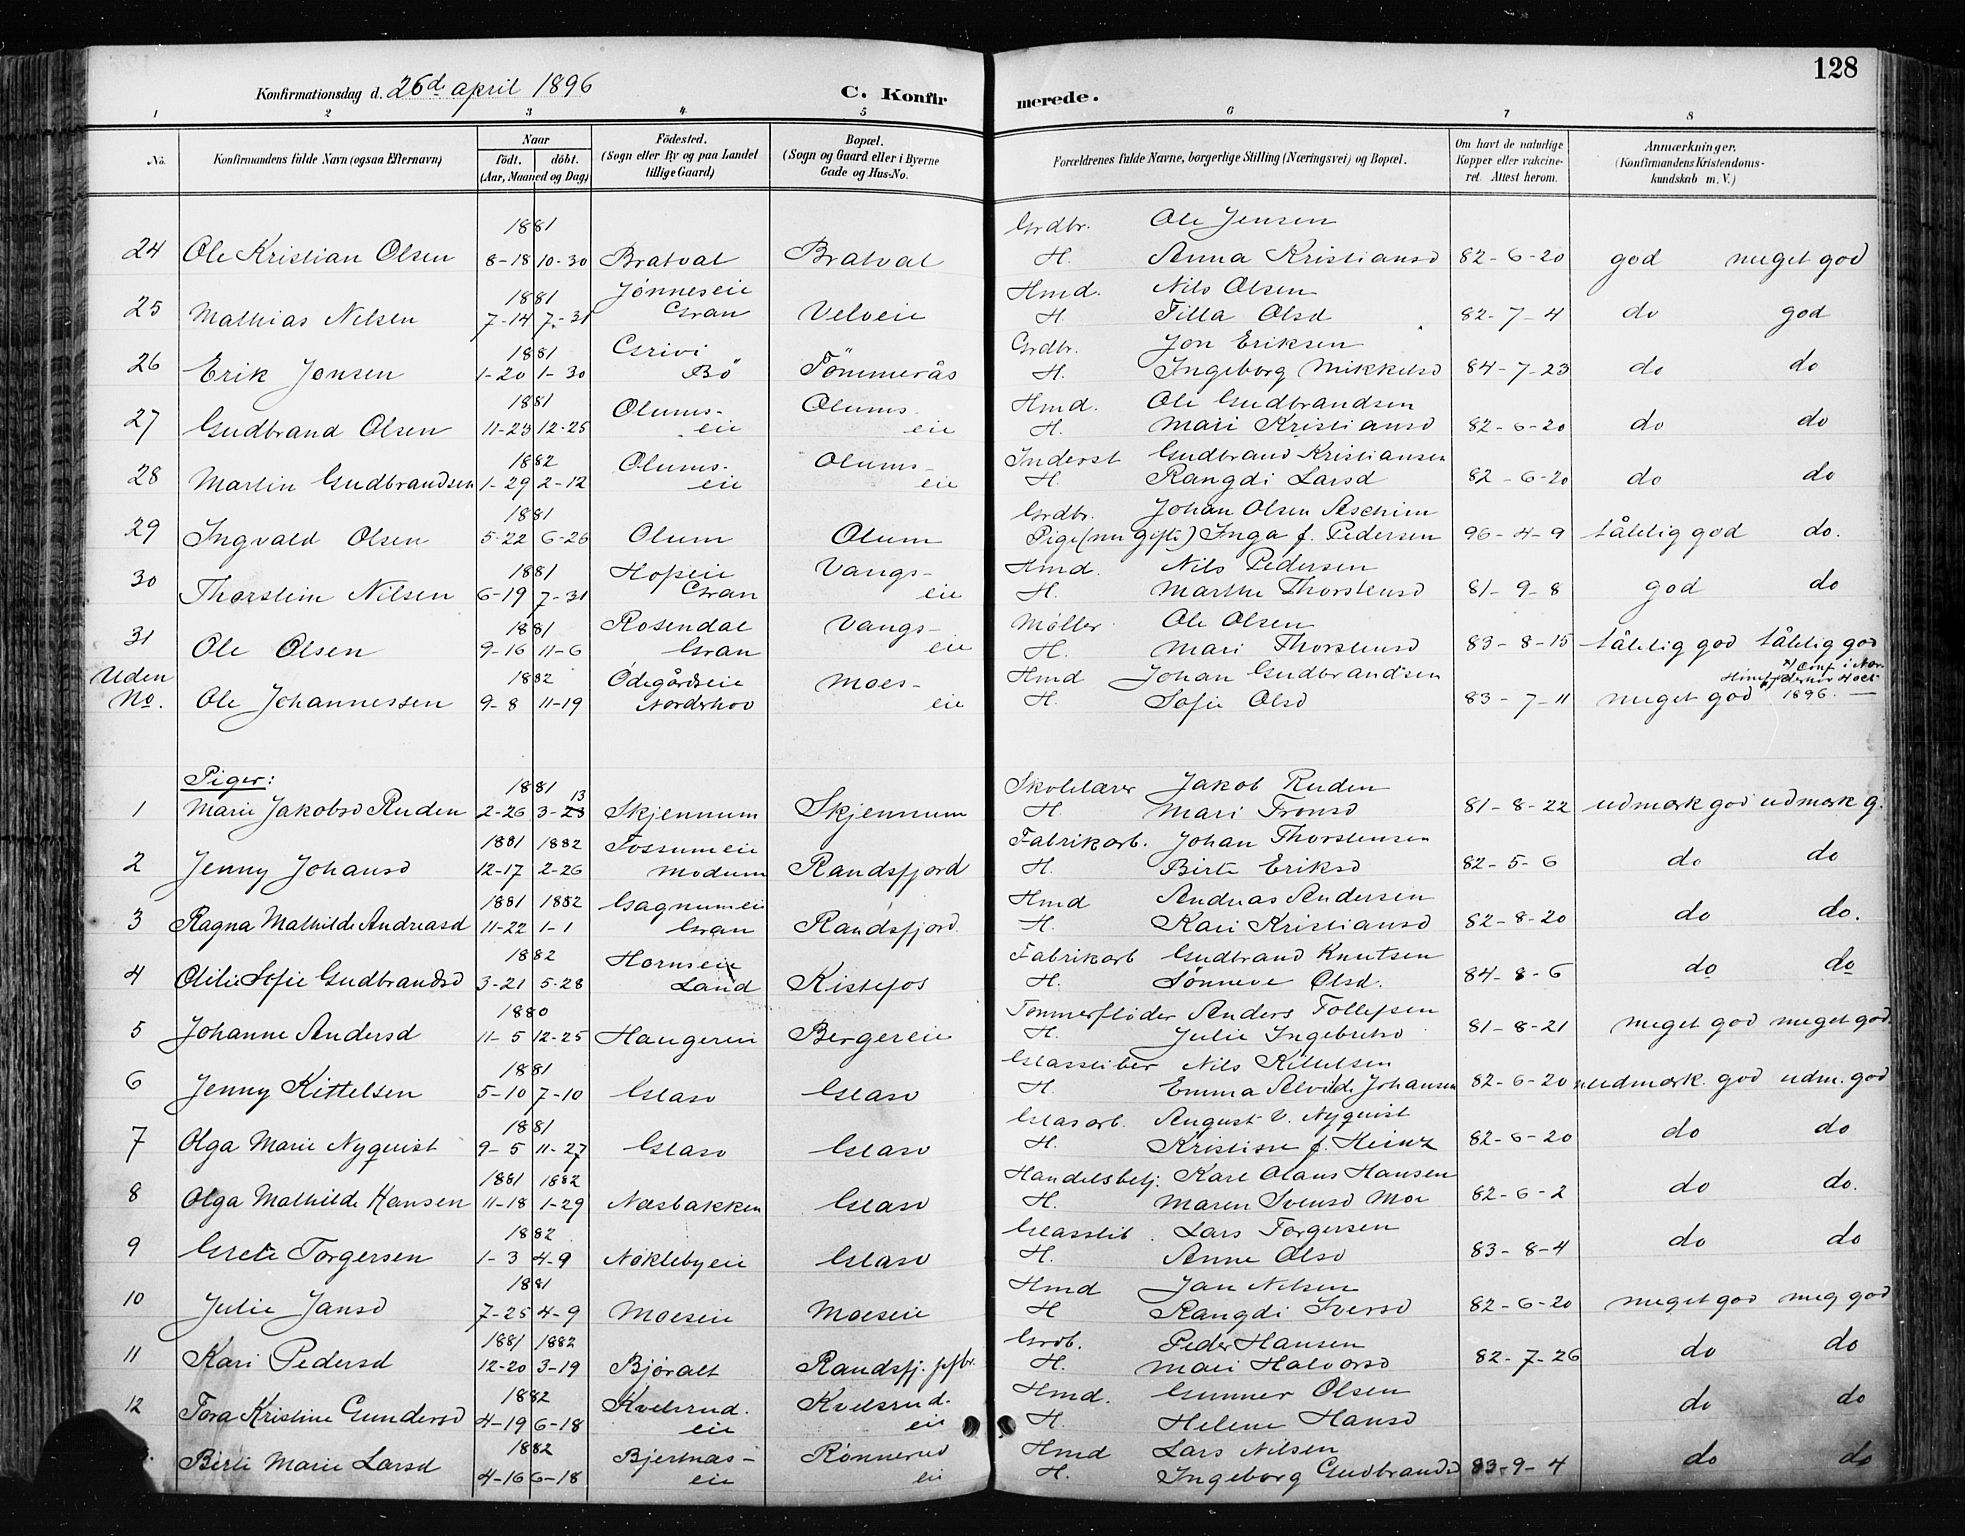 128
Konfirmationsdag d. 26d april 1896 C. Konfirmerede.
1 2 3 4 5 6 7 8
No. Konfirmandens fulde Navn (ogsaa Efternavn) Naar født. døbt. (Aar, Maaned og Dag) Fødested. (Sogn eller By og paa Landet tillige Gaard) Bopæl. (Sogn og Gaard eller i Byerne Gade og Hus-No. Forældrenes fulde Navne, borgerlige Stilling (Næringsvei) og Bopæl. Om havt de naturlige Kopper eller vakcineret. Attest herom. Anmærkninger. (Konfirmandens Kristendomskundskab m. V.)
1881 Grdbr. Ole Jensen
24 Ole Kristian Olsen 8-18 10-30 Bratval Bratval H. Anna Kristiansd 82-6-20 god meget god
1881 Jønneseie Hmd. Nils Olsen
25 Mathias Nilsen 7-14 7-31 Gran Velveie H. Tilla Olsd 82-7-4 do god
1881 Grivi Grdbr. Jon Eriksen
26 Erik Jonsen 1-20 1-30 Bö Tömmerås H. Ingeborg Mikkelsd 84-7-23 do do
1881 Olums- Olums- Hmd. Ole Gudbrandsen
27 Gudbrand Olsen 11-23 12-25 eie eie H. Mari Kristiansd 82-6-20 do do
1882 Olums- Olums- Inderst Gudbrand Kristiansen
28 Martin Gudbrandsen 1-29 2-12 eie eie H. Rangdi Larsd 82-6-20 do do
1881 Grdbr. Johan Olsen Aschim
29 Ingvald Olsen 5-22 6-26 Olum Olum Pige (nu gift) Inga f. Pedersen 96-4-9 tålelig god do.
1881 Hopeie Vangs- Hmd. Nils Pedersen
30 Thorstein Nilsen 6-19 7-31 Gran eie H. Marthe Thorstensd 81-9-8 god do
1881 Rosendal Vangs- Møller Ole Olsen
31 Ole Olsen 9-16 11-6 Gran eie H. Mari Thorstensd 83-8-15 tålelig god tålelig god
Uden 1882 Ödegårdseie Moes- Hmd Johan Gudbrandsen
No. Ole Johannessen 9-8 11-19 Norderhov eie H. Sofie Olsd 83-7-11 meget god 1896.
Piger:
1881 13 Skolelærer Jakob Ruden
1 Marie Jakobsd Ruden 2-26 3-23 Skjennum Skjennum H. Mari Tronsd 81-8-22 udmærk god udmærk g.
1881 1882 Fossumeie Fabrikarb. Johan Thorstensen
2 Jenny Johansd 12-17 2-26 Modum Randsfjord H. Birte Eriksd 82-5-6 do do
1881 1882 Gagnumeie Hmd Andreas Andersen
3 Ragna Mathilde Andreasd 11-22 1-1 Gran Randsfjord H. Kari Kristiansd 82-8-20 do do.
1882 Hornseie Fabrikarb Gudbrand Knutsen
4 Otilie Sofie Gudbrandsd 3-21 5-28 Land Kistefos H. Sønneve Olsd. 84-8-6 do do
1880 Tømmerfløder Anders Tollefsen
5 Johanne Andersd 11-5 12-25 Haugereie Bergereie H. Julie Ingebretsd 81-8-21 meget god meget god.
1881 Glassliber Nils Kittelsen
6 Jenny Kittelsen 5-10 7-10 Glasv Glasv H. Emma Alvilde Johansen 82-6-20 udmærk. god udm. god
1881 Glasarb. August V. Nyquist
7 Olga Marie Nyquist 9-5 11-27 Glasv Glasv H. Kristine f. Heinz 82-6-20 do do
1881 1882 Handelsbetj. Karl Olaus Hansen
8 Olga Mathilde Hansen 11-18 1-29 Næsbakken Glasv H. Maren Svensd Moe 82-6-2 do do.
1882 Glasslib. Lars Torgersen
9 Grete Torgersen 1-3 4-9 Nøklebyeie Glasv H. Anne Olsd 83-8-4 do do
1881 Hmd Jan Nilsen
10 Julie Jansd 7-25 4-9 Moeseie Moeseie H Rangdi Iversd 82-6-20 meget god meg god
1881 1882 Grdb. Peder Hansen
11 Kari Pedersd 12-20 3-19 Bjøralt Randsfj. H. Mari Halvorsd 82-7-26 do do
1882 Kvelsrud- Kvelsrud- Hmd. Gunner Olsen
12 Tora Kristine Gundersd 4-19 6-18 eie eie H. Helene Hansd do do
1882 Bjertnæs- Rønnerud Hmd Lars Nilsen
Birte Marie Larsd 4-16 6-18 eie eie H. Ingeborg Gudbrandsd 83-9-4 do do